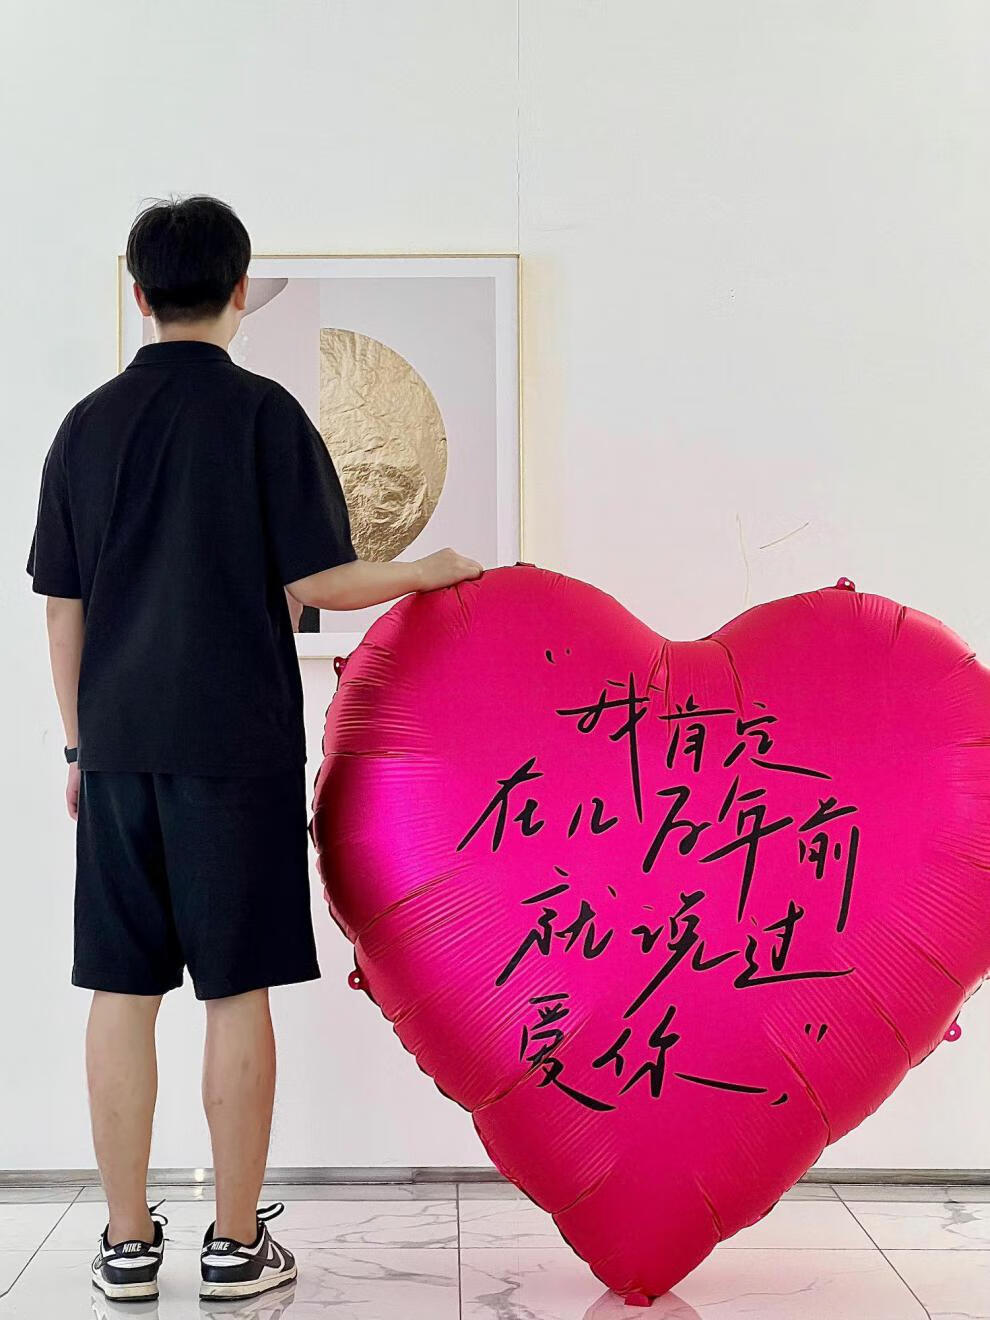 “我肯定
在几百年前
就说过
爱你，”
NIKE
NIKE